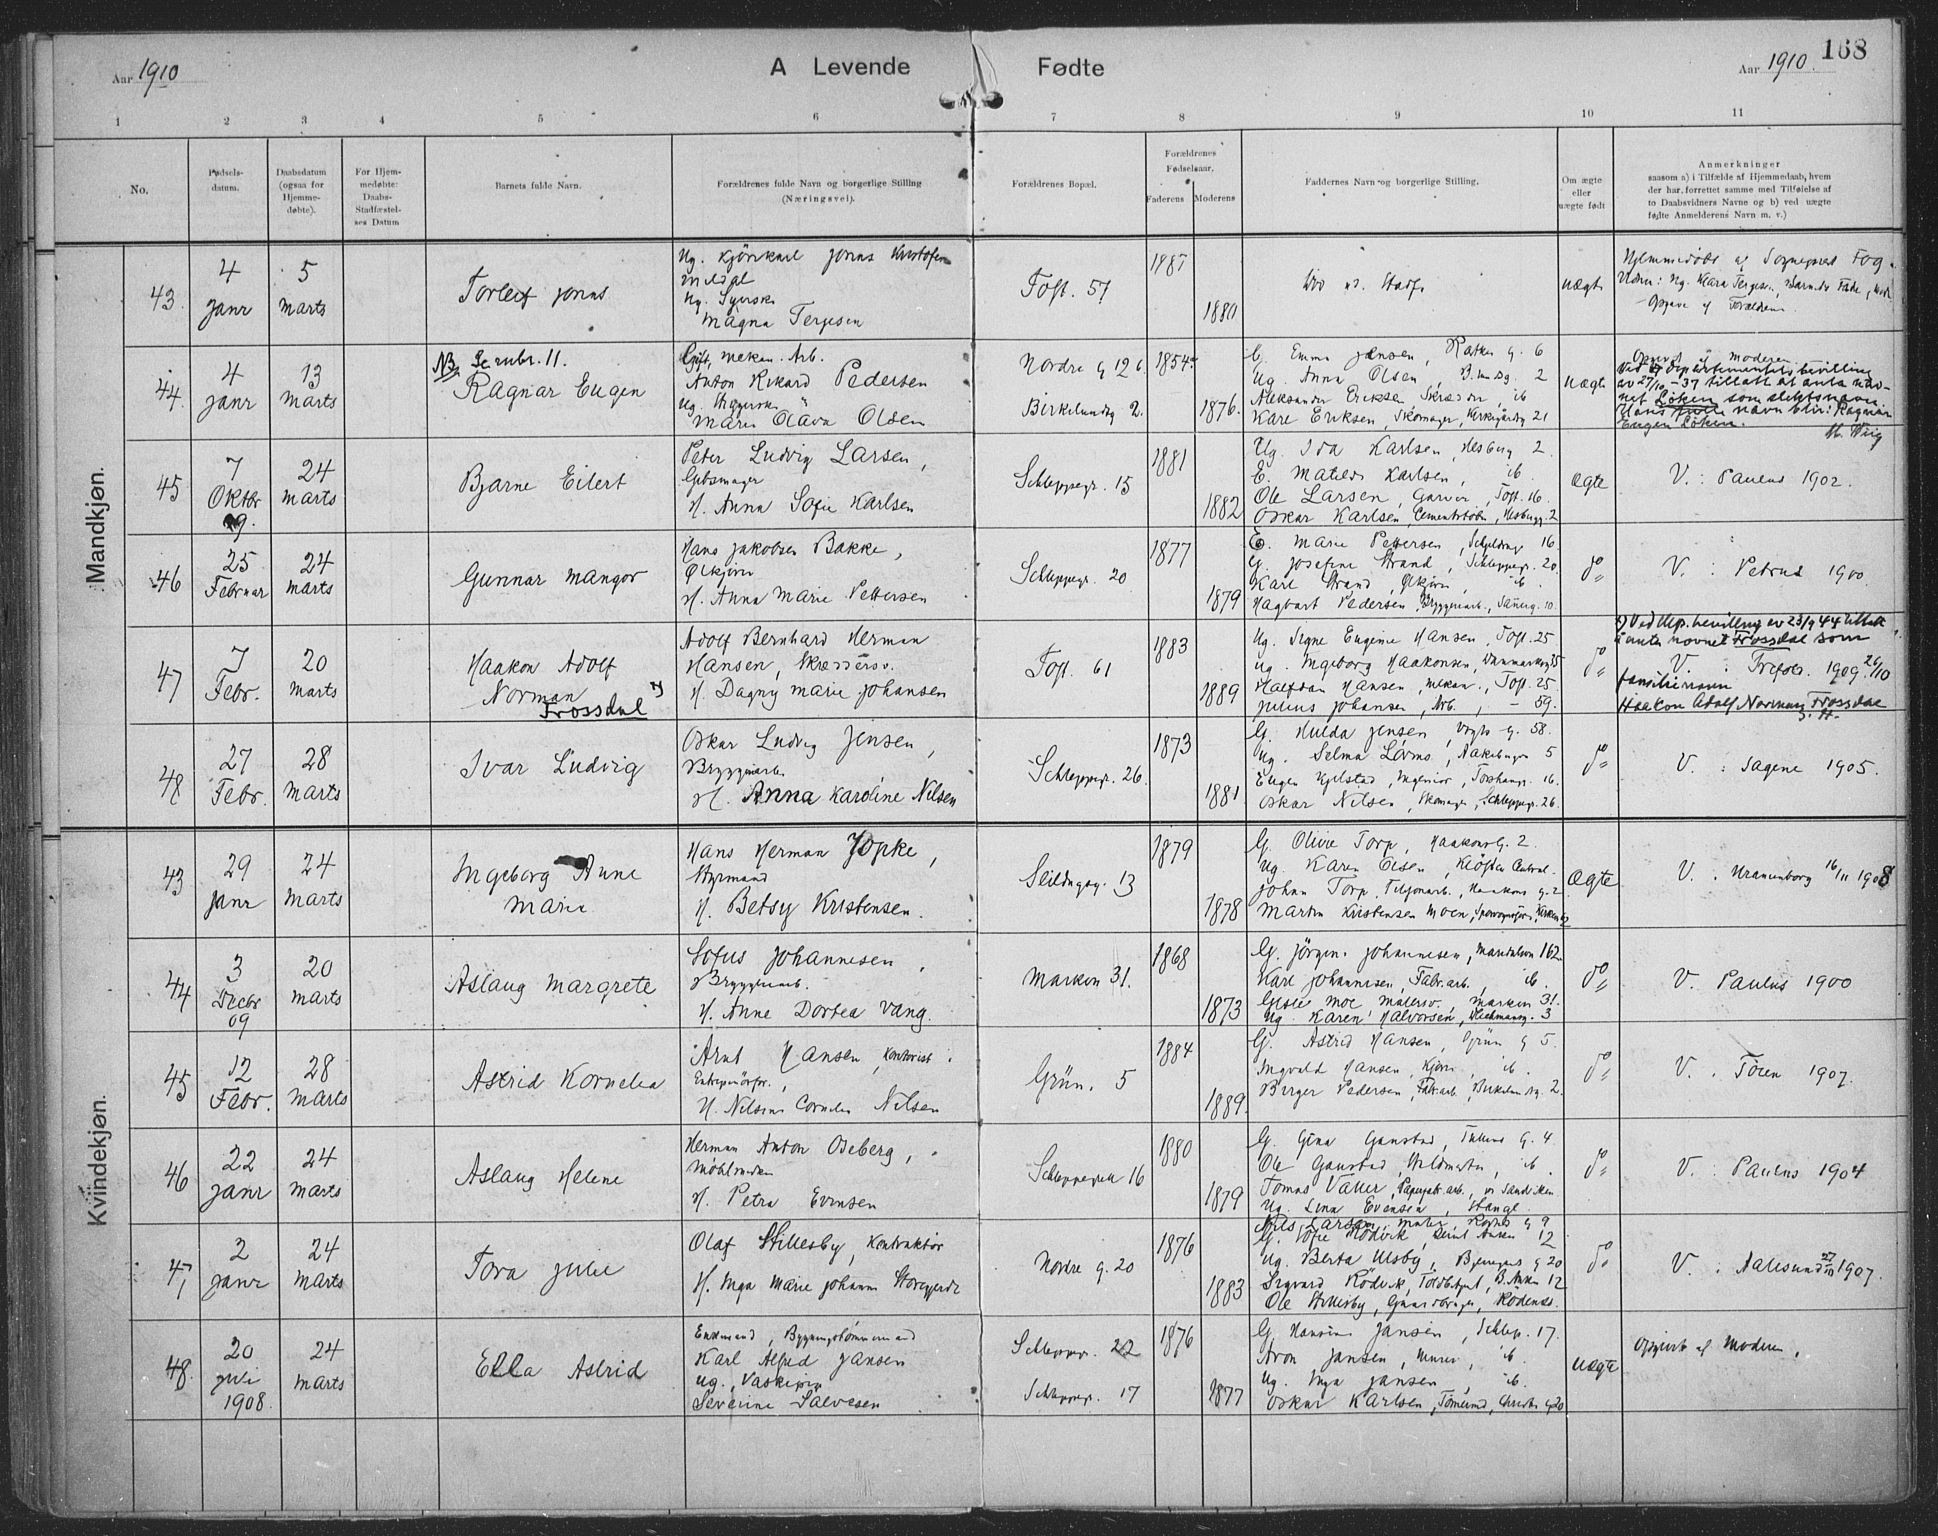 Aar 1910
A Levende Fødte
Aar 1910.
168
1 2 3 4 5 6 7 8 9 10 11
No.
Fødsels-
datum.
Daabsdatum
(ogsaa for
Hjemme-
døbte).
For Hjem-
medøbte:
Daabs-
Stadfæstel-
ses Datum
Barnets fulde Navn.
Forældrenes fulde Navn og borgerlige Stilling
(Næringsvei).
Forældrenes Bopæl.
Forældrenes
Fødselsaar.
Faderens Moderens
Faddernes Navn og borgerlige Stilling.
Om ægte
eller
uægte født
Anmerkninger
saasom a) i Tilfælde af Hjemmedaab, hvem
der har forrettet samme med Tilføielse af
to Daabsvidners Navne og b) ved uægte
fødte Anmelderens Navn m. v.)
Mandkjøn.
43.
4
Janr
5
Marts
Torleif Jonas
Ug. Jonas Kristofer
Ug. Syerske
Magna Terjesen
Toft. 57
1887
1880
uægte
Hjemmedøbt af Sogneprest
Opgave af Forældrene
44.
4
Janr
13
Marts
NB. Se rubr. 11.
Ragnar Eugen
Gift, mekan. Arb.
Anton Rikard Pedersen
Ug.
Marie Olava Olsen
Nordre g 12 b.
Birkelundg 2.
1854
1876.
G. Emma Jensen, g. 6
Ug. Anna Olsen, 2
Aleksander Eriksen Skræder, ib
Kare Eriksen, Skomager, Kirkegårdg 21
uægte
Opgivet af moderen.
Ved departementets bevilling
av 27/10 -37 tillatt at anta nav-
net Løken som slektsnavn.
Hans fulle navn blir: Ragnar
Eugen Løken.
45
7
Oktbr
09.
24
Marts
Bjarne Eilert
Peter Ludvig Larsen,
Gibsmager
H. Anna Sofie Karlsen
Schleppegr. 15
1881
1882
Ug. Ida Karlsen, Hesbergg 2.
E. Matilde Karlsen, ib
Ole Larsen, Garver, Toft. 16.
Oskar Karlsen, Cementstøber, Hesbergg. 2
Ægte
V. : Paulus 1902.
46
25
Februar
24
Marts
Gunnar Mangor
Hans Jakobsen Bakke,
Ølkjører
H. Anna Marie Pettersen
Schleppegr. 20
1877
1879
E. Marie Pettersen, 16.
G. Josefine Strand, Schleppegr. 20.
Karl Strand, Ølkjører, ib
Hagbart Pedersen, Bryggeriarb., 10.
do
V. : Petrus 1900.
47
7
Febr.
20
Marts
Haakon Adolf
Norman x)
Frossdal
Adolf Bernhard Herman
Hansen, Skrædersv.
H. Dagny Marie Johansen
Toft. 61
1883
1889
Ug. Signe Eugenie Hansen, Toft. 25
Ug. Ingeborg Haakonsen, Danmarksg 35
Halfdan Hansen, Mekan., Toft. 25.
Julius Johansen, Arb., - 59.
do
x) Ved bevilling av 23/9 44 tillatt
å anta navnet Frossdal som
V. : 1909. 26/10
familienavn
Haakon Adolf Norman Frossdal
48
27
Febr.
28
Marts
Ivar Ludvig
Oskar Ludvig Jensen,
Bryggeriarb.
H. Anna Karoline Nilsen
Schleppegr. 26.
1873
1881
G. Hulda Jensen, Vogts g. 58.
Ug. Selma Lövmo, 5
Eugen Hjelstad, Ingeniør, 16.
Oskar Nilsen, Skomager, Schleppegr. 26.
do
V. : Sagene 1905.
Kvindekjøn.
43
29
Janr
24
Marts
Ingeborg Anne
Marie
Hans Herman Jopke,
Styrmand
H. Betsy Kristensen.
Seildugsg. 13
1879
1878
G. Olivie Torp, Haakonsg. 2.
Ug. Karen Olsen,
Johan Torp, Haakons g. 2
Martin Kristensen Moen,
Ægte
V. : Uranienborg 16/11 1908
44
3
Decbr
09
20
Marts
Aslaug Margrete
Sofus Johannesen,
Bryggeriarb.
H. Anne Dortea Vang.
Markvn 31.
1868
1873
G. Jörgine Johannesen, Maridalsvn 162.
Karl Johannesen, Fabr.arb., ib.
Moe Malersv., Markvn 31.
Ug. Karen Halvorsen, 3
do
V. Paulus 1900
45
12
Febr.
28
Marts
Astrid Kornelia
Arnt Hansen, Kontorist
Entreprenørfor.,
H. Nilsine Cornelia Nilsen
Grün. 5
1884
1889.
G. Astrid Hansen, Grün g 5.
Ingvald Hansen, Kjører, ib.
Birger Pedersen, Fabr.arb., Birkelundg. 2.
do
V. : Töien 1907.
46
22
Janr
24
Marts
Aslaug Helene
Herman Anton Oseberg,
Møbelsnedker
H. Petra Evensen
Schleppegrell 16
1880
1879
G. Gina Ganstad, Tullins g. 4
Ole Ganstad, ib.
Tomas Valler, Papirfabr.arb.,
Ug. Lina Evensen, Stange
do
V. : Paulus 1904
47
2
Janr
24
Marts
Tora Julie
Olaf Stillesby, Kontraktør
H. Inga Marie Johanne Storegjerde
Nordre g. 20
1876
1883
Nils Larsen, g 9
G. Tofie Rödvik, 12
Ug. Berta Ulsby, g 20
Sigvard Rödvik, Toldbetjent, 12
Ole Stillesby, Gaardbruger, Rödenes.
do
V. : Aalesund 27/10 1907.
48.
20
juli
1908.
24
Marts
Ella Astrid
Enkemand, Bygningstømmermand
Karl Alfred Jansen
Ug., Vaskepige
Severine Salvesen
Schleppegr. 22
Schleppegr. 17
1876
1877
G. Hansine Jansen, Schlep. 17.
Aron Jansen, Murer, ib.
Ug. Inga Jansen, ib.
Oskar Karlsen, Tømmermd, g 20
uægte
Opgivet af Moderen.